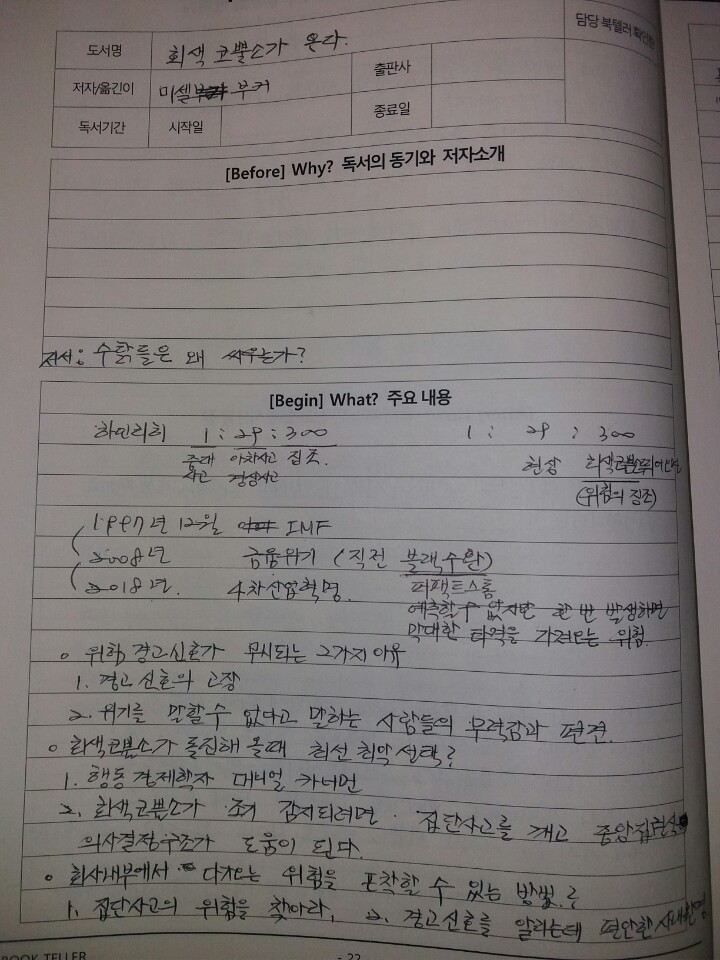 담당 북텔러 확인란
도서명 회색 코뿔소가 온다.
저자/옮긴이 미셸 부커 출판사
독서기간 시작일 종료일
[Before] Why? 독서의 동기와 저자소개
저서: 수탉들은 왜 싸우는가?
[Begin] What? 주요 내용
하인리히 1 : 29 : 300 1 : 29 : 300
중대 아차사고 징조. 현상 회색코뿔소
사고 경상사고 (위험의 징조)
1997년 12월 IMF
2008년 금융위기 (직전 블랙수완)
2018년. 4차산업혁명. 퍼팩트스톰
예측할 수 없지만 한 번 발생하면
막대한 타격을 가져오는 위험.
○ 위험, 경고신호가 무시되는 2가지 이유
1. 경고 신호의 고장
2. 위기를 말할 수 없다고 말하는 사람들의 무력감과 편견.
○ 회색코뿔소가 돌진해 올때 최선 최악 선택?
1. 행동 경제학자 대니얼 카너먼
2. 회색코뿔소가 조기 감지되려면 집단사고를 깨고 중앙집권식
의사결정구조가 도움이 된다.
○ 회사내부에서 다가오는 위험을 포착할 수 있는 방법?
1. 집단사고의 위험을 찾아라, 2. 경고신호를 알리는데 편안한 사내환경
BOOK TELLER - 22